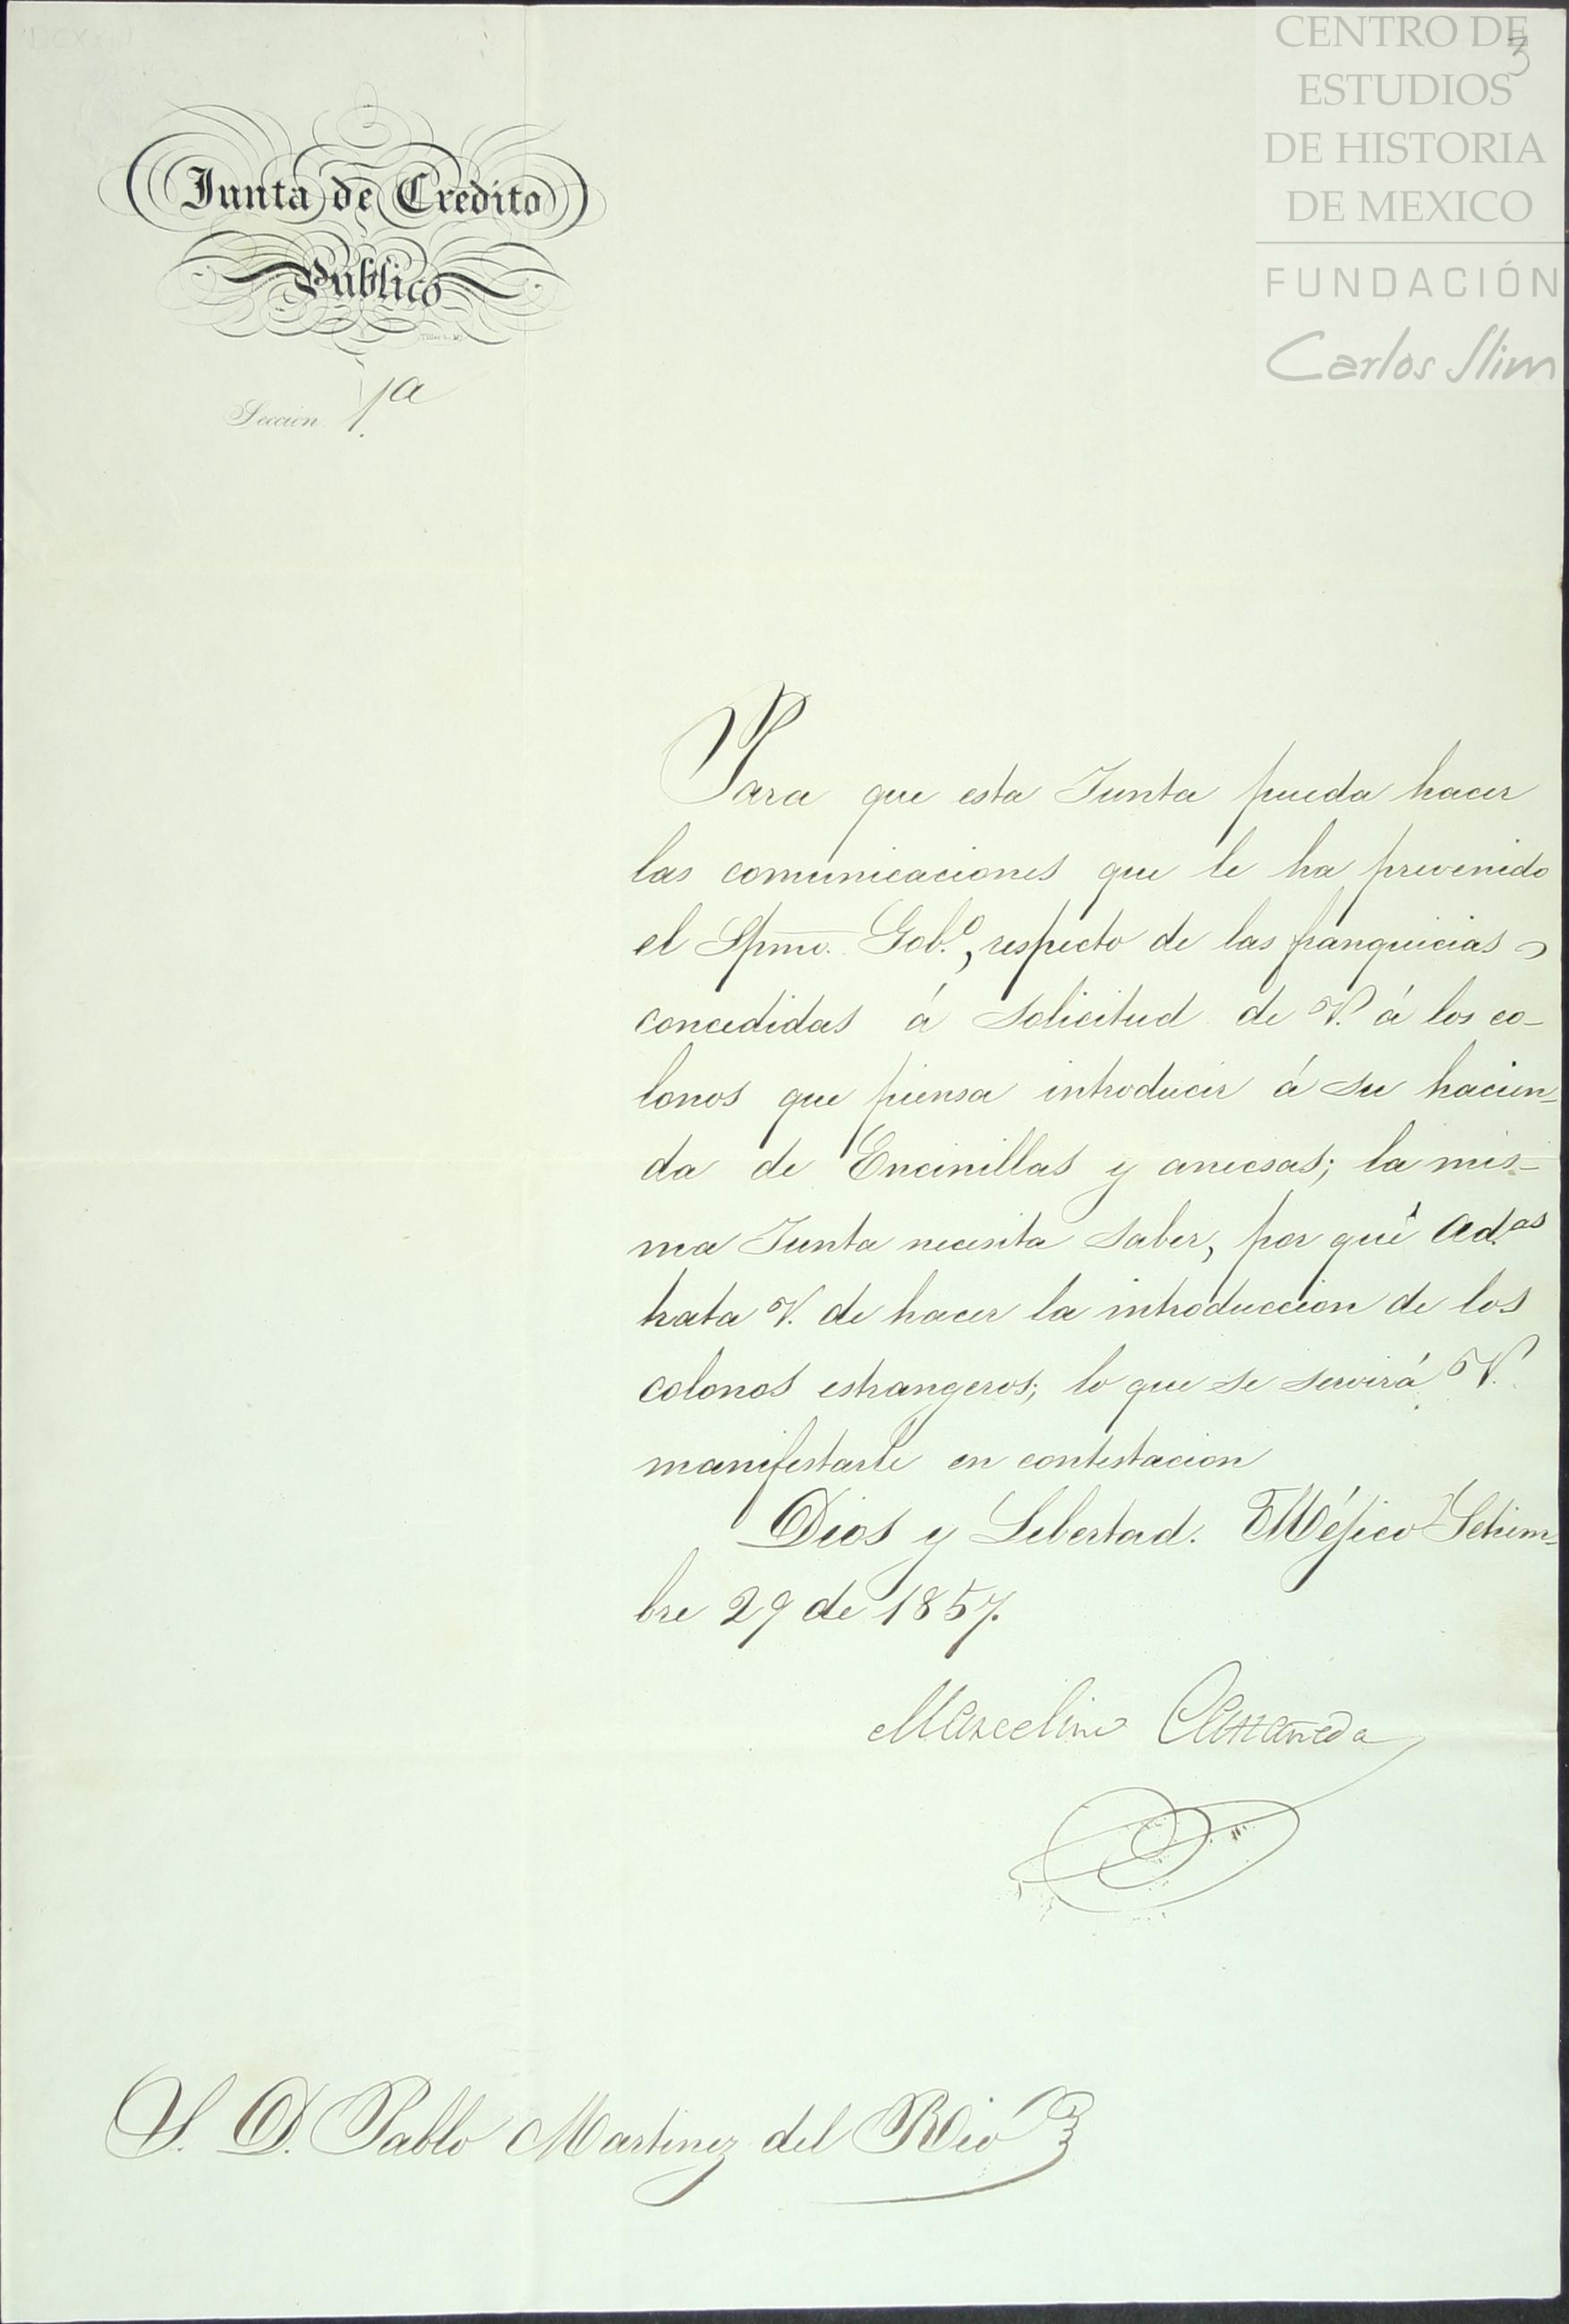 CENTRO DE
ESTUDIOS
DE HISTORIA
DE MEXICO
FUNDACIÓN
Carlos Slim
3
Junta de Credito
Público
Seccion 1.ª
Para que esta Junta pueda hacer
las comunicaciones que le ha prevenido
el Spmo. Gob.º, respecto de las franquicias
concedidas á solicitud de V. á los co-
lonos que piensa introducir á su hacien-
da de Encinillas y anecsas; la mis-
ma Junta necesita saber, por qué Ad.as
trata V. de hacer la introduccion de los
colonos estrangeros; lo que se servirá V.
manifestarle en contestacion
Dios y Libertad. Méjico Setiem-
bre 29 de 1857.
Marcelino Castañeda
S. D. Pablo Martinez del Rió